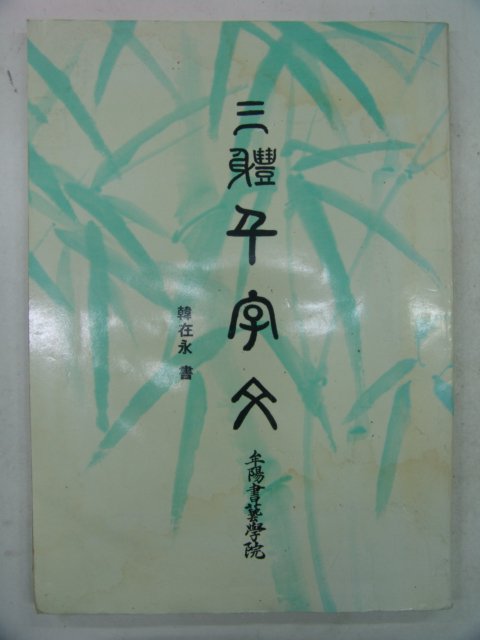 三體千字文
韓在永 書
牟陽書藝學院